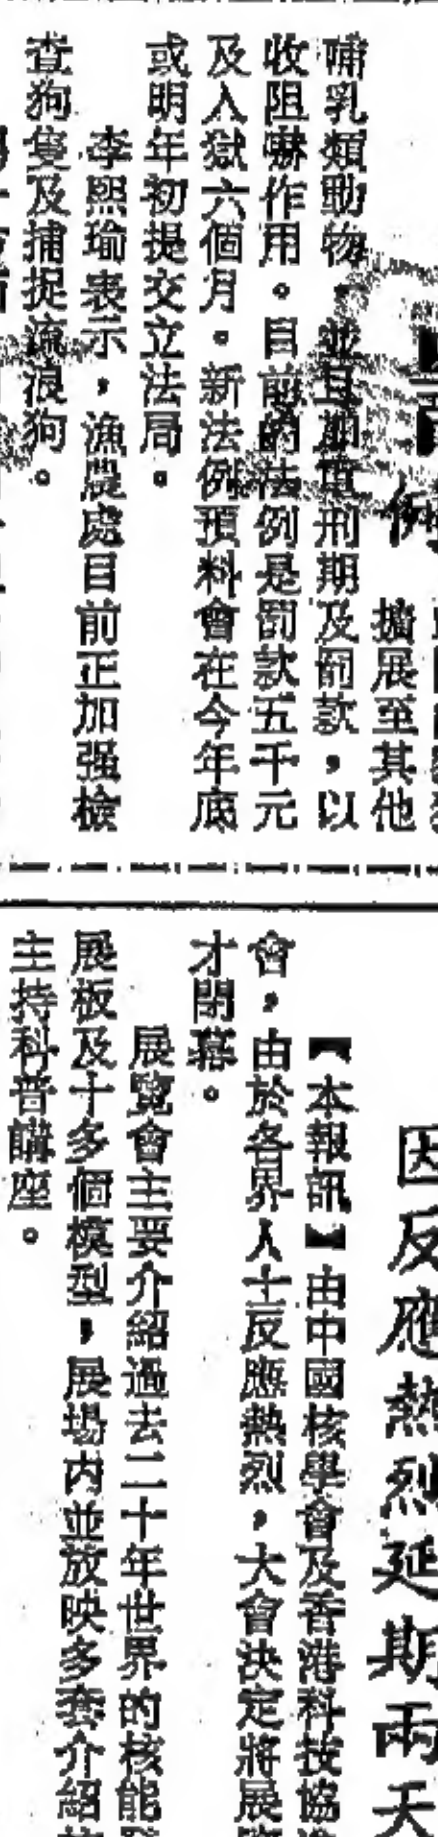 例
擴展至其他
哺乳類動物，並且加重刑期及罰款，以
收阻嚇作用。目前的法例是罰款五千元
及入獄六個月。新法例預料會在今年底
或明年初提交立法局。
李熙瑜表示，漁農處目前正加强檢
查狗隻及捕捉流浪狗。
因反應熱烈延期兩天
【本報訊】由中國核學會及香港科技協進
會，由於各界人士反應熱烈，大會決定將展覽
才閉幕。
展覽會主要介紹過去二十年世界的核能發
展板及十多個模型，展場内並放映多套介紹
主持科普講座。